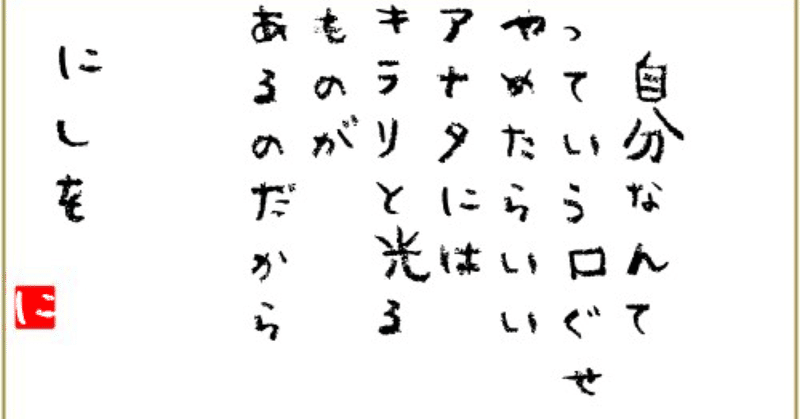 自分なんて
っていう口ぐせ
やめたらいい
アナタには
キラリと光る
ものが
あるのだから
にしを
に